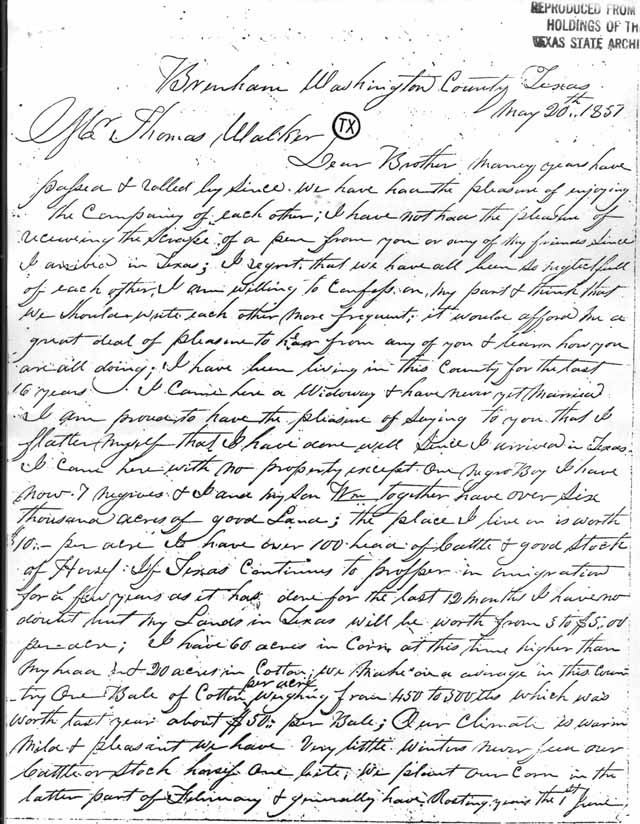 REPRODUCED FROM
HOLDINGS OF TH
TEXAS STATE ARCHI
Brenham Washington County Texas
May 20th.. 1857
Mr. Thomas Walker TX
Dear Brother Maney years have
passed & rolled by since we have had the pleasure of enjoying
the Company of each other; I have not had the pleasure of
receiveing the Scrape of a pen from you or any of my friends since
I arrived in Texas; I regret that we have all been so neglectfull
of each other, I am willing to Confess on my part & think that
we should write each other more frequent; it would afford me a
great deal of pleasure to hear from any of you & learn how you
are all doing; I have been living in this County for the last
16 years I Came here a Widoway & have never yet Married
I am proud to have the pleasure of Saying to you that I
flatter myself that I have done well Since I arrived in Texas.
I Came here with no property except One Negro Boy I have
now 7 negroes & I and my Son Wm together have over Six
thousand acres of good Land; the place I live on is worth
$10.- per acre & have over 100 head of Cattle & good Stock
of Horses. If Texas Continues to prosper in emigration
for a few years as it has done for the last 12 months I have no
doubt but my Lands in Texas will be worth from 3 to $5.00
per acre; I have 60 acres in Corn at this time higher than
my head & 20 acres in Cotton, we make on a average in this Coun
try One Bale of Cotton per acre weighing from 450 to 500 lbs which was
worth last year about $50.. per Bale; Our Climate is warm
Mild & pleasant we have Very little winters never feed our
Cattle or Stock horses One bite; We plant Our Corn in the
latter part of February & generally have Rosting years the 1st June,